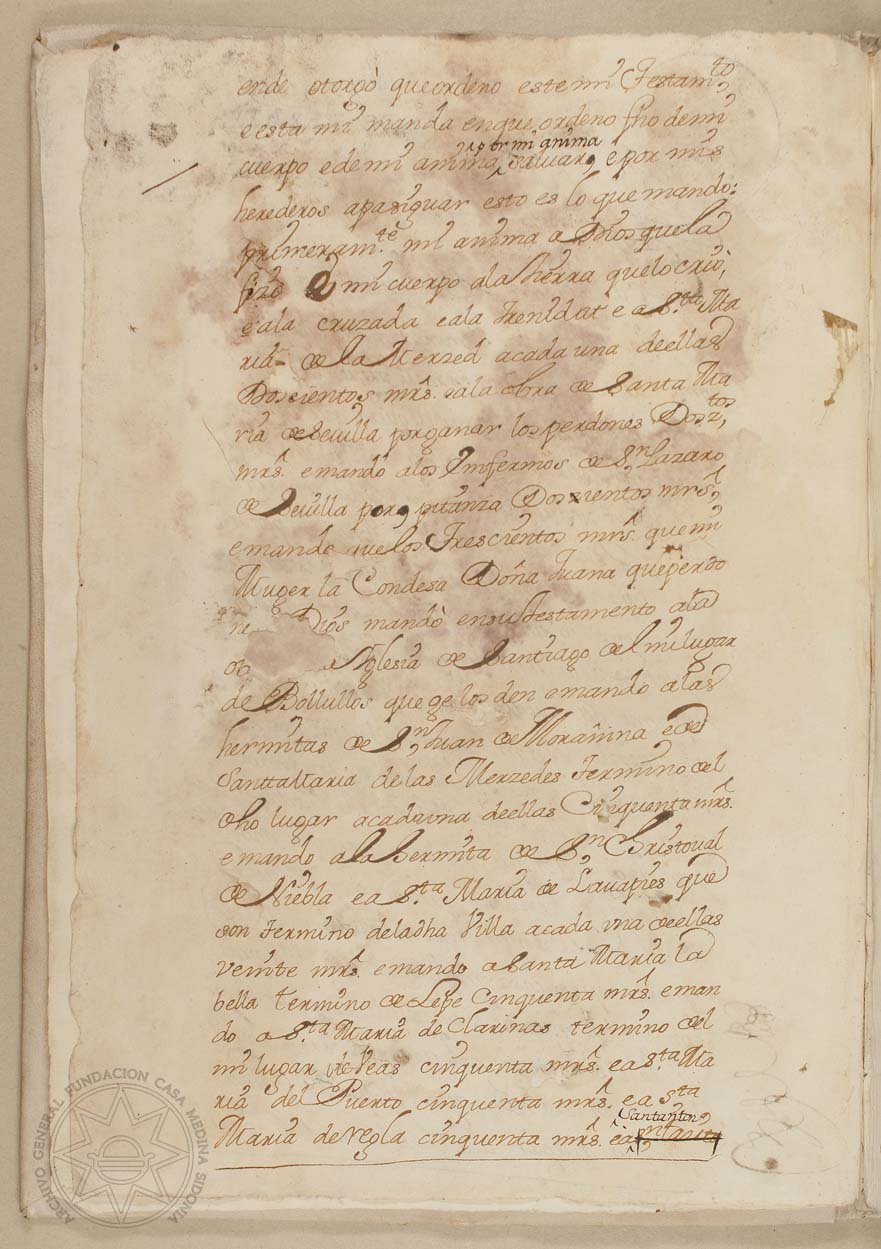 ende otorgò que ordeno este mi Testam.to
e esta mi manda en que ordeno fho de mi
cuerpo e de mi anima por mi anima salvar, e por mis
herederos apasiguar esto es lo que mando:
primeram.te mi anima a Dios que la
fizo e mi cuerpo a la tierra que lo criò,
e a la cruzada e a la Trenidat e a S.ta Ma
ria de la Merzed a cada una de ellas
Doscientos mrs. e a la obra de Santa Ma
ria de Sevilla por ganar los perdones Dosz.tos
mrs. e mando a los Imfermos de S.n Lazaro
de Sevilla por pitanza Doszientos mrs.
e mando que los Trescientos mrs. que mi
Muger la Condesa Doña Juana que perdo
ne Dios mandò en su testamento a la
ob Iglesia de Santiago de el mi lugar
de Bollullos que ge los den e mando a las
hermitas de S.n Juan de Morañina e de
Santta Maria de las Merzedes Termino del
dho lugar a cada vna de ellas Cinquenta mrs.
e mando a la hermita de S.n Christoval
de Niebla e a S.ta Maria de Lavapies que
son Termino de la dha Villa a cada vna de ellas
veinte mrs. e mando a Santa Maria la
bella termino de Lepe Cinquenta mrs. e man
do a S.ta Maria de Clarinas termino del
mi lugar de Veas cinquenta mrs. e a S.ta Ma
ria del Puerto cinquenta mrs. e a S.ta
Maria de Regla cinquenta mrs. e a Santanton
ARCHIVO GENERAL FUNDACION CASA MEDINA SIDONIA